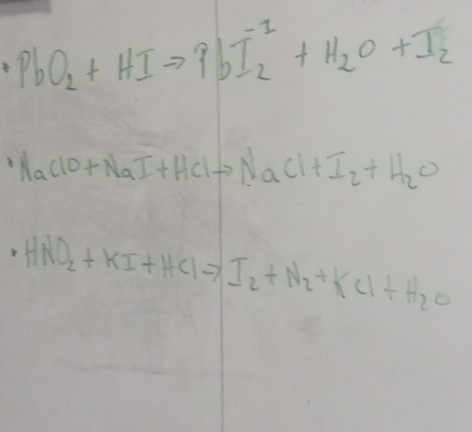 • PbO₂ + HI ⇒ PbI₂⁻¹ + H₂O + I₂
• NaClO + NaI + HCl → NaCl + I₂ + H₂O
• HNO₂ + KI + HCl ⇒ I₂ + N₂ + KCl + H₂O